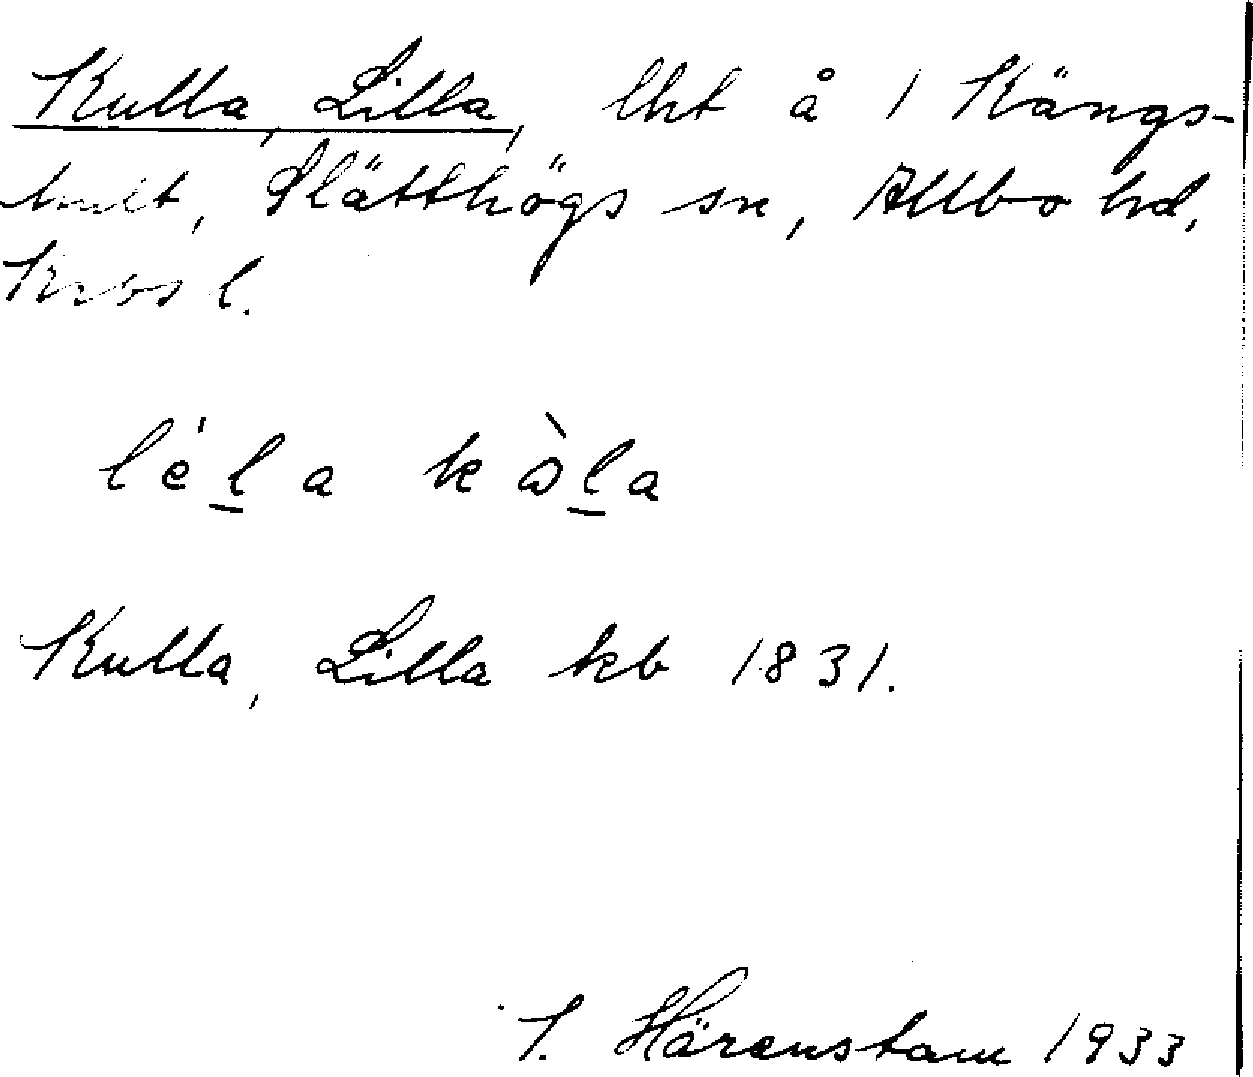 Kulla, Lilla, lht å 1 Kängs-
hult, Slätthögs sn, Allbo hd,
Krbs l.
léla kòla
Kulla, Lilla kb 1831.
I. Härenstam 1933